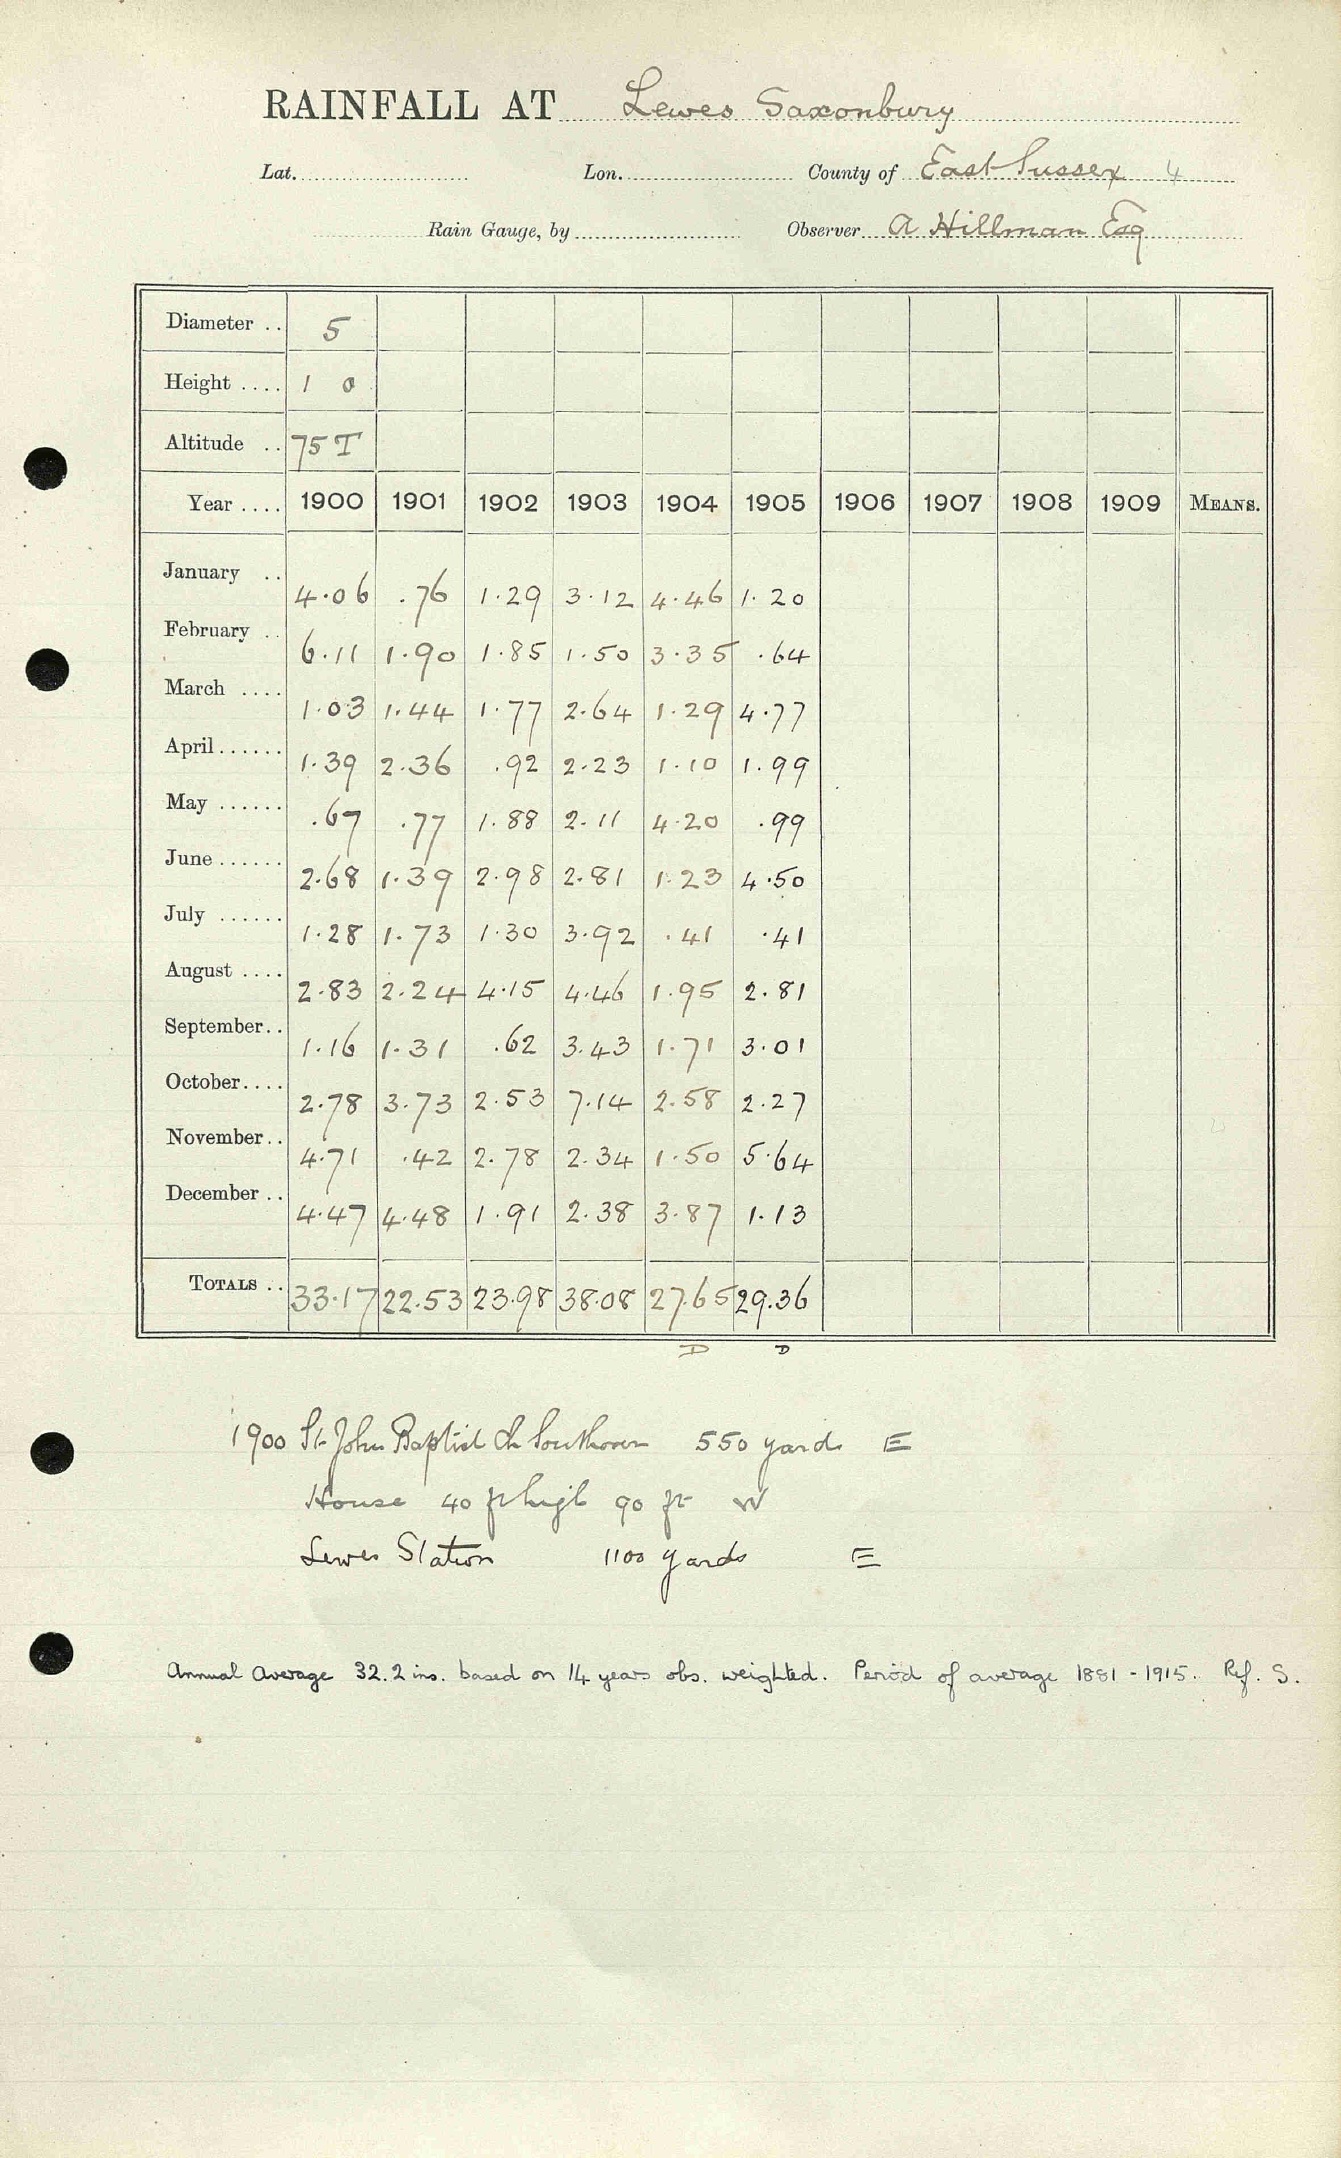 RAINFALL AT Lewes Saxonbury
Lat. Lon. County of East Sussex 4
Rain Gauge, by Observer A Hillman Esq
Diameter .. 5
Height .... 1 0
Altitude .. 75 T
Year .... 1900 1901 1902 1903 1904 1905 1906 1907 1908 1909 MEANS.
January .. 4.06 .76 1.29 3.12 4.46 1.20
February .. 6.11 1.90 1.85 1.50 3.35 .64
March .... 1.03 1.44 1.77 2.64 1.29 4.77
April ...... 1.39 2.36 .92 2.23 1.10 1.99
May ...... .67 .77 1.88 2.11 4.20 .99
June ...... 2.68 1.39 2.98 2.81 1.23 4.50
July ...... 1.28 1.73 1.30 3.92 .41 .41
August .... 2.83 2.24 4.15 4.46 1.95 2.81
September.. 1.16 1.31 .62 3.43 1.71 3.01
October.... 2.78 3.73 2.53 7.14 2.58 2.27
November.. 4.71 .42 2.78 2.34 1.50 5.64
December .. 4.47 4.48 1.91 2.38 3.87 1.13
TOTALS .. 33.17 22.53 23.98 38.08 27.65 29.36
D D
1900 St John Baptist Ch Southover 550 yards E
House 40 ft high 90 ft W
Lewes Station 1100 yards E
Annual Average 32.2 ins. based on 14 years obs. weighted. Period of average 1881 - 1915. Ref. S.